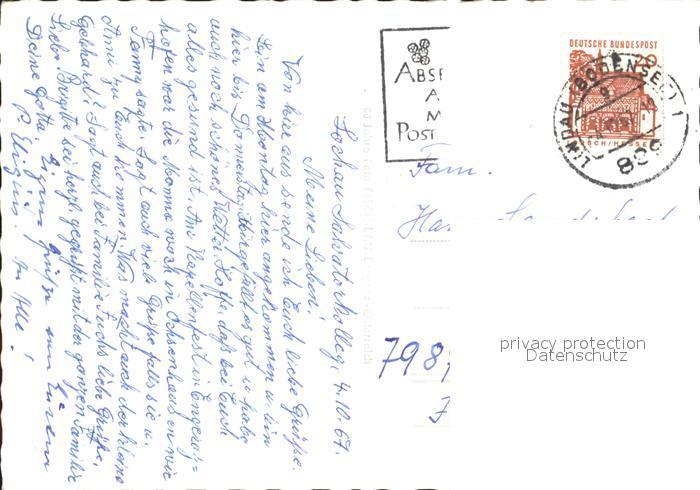 Lochau Salvatorkolleg, 4.10.67.
Meine Lieben!
Von hier aus sende ich Euch liebe Grüße.
Bin am Montag hier angekommen u. bin
hier bis Donnerstag. Hier gefällt es gut u. habe
auch noch schönes Wetter. Hoffe, daß bei Euch
alles gesund ist. Am Kapellenfest in
hofen war die Mamma noch in Ochsenhausen wie
Fanny sagte. Sagt auch viele Grüße falls sie u.
Anni zu Euch kommen. Was macht auch der kleine
Gebhard? Sagt auch bei Familie Fuchs liebe Grüße.
Liebe Brigitte sei herzl. gegrüßt mit der ganzen Familie
Deine Gotte
P. Eligius.
An Alle!
ABSE
A
M
POST
DEUTSCHE BUNDESPOST
20
LINDAU (BODENSEE) 1
899
Fam.
798
privacy protection
Datenschutz